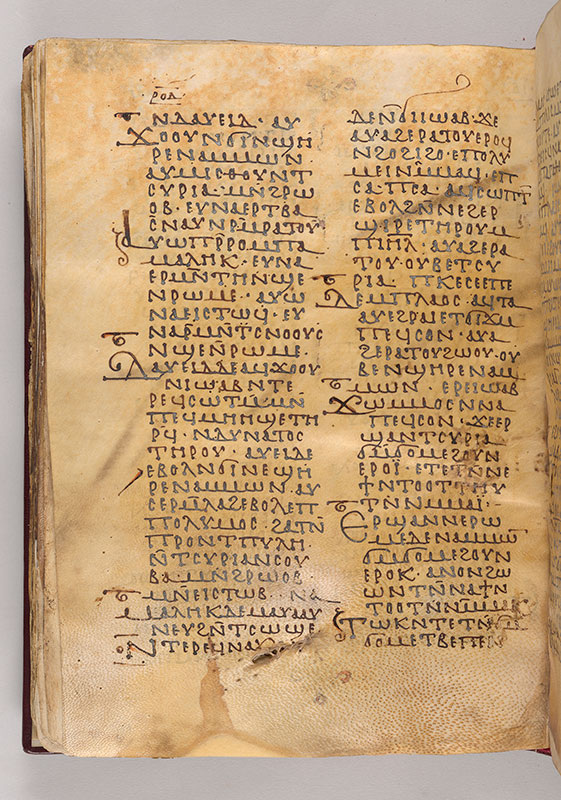 ⲣⲟⲇ
ⲛⲇⲁⲩⲉⲓⲇ · ⲁⲩ
ϫⲟⲟⲩⲛϭⲓⲛϣⲏ
ⲣⲉⲛⲁⲙⲙⲱⲛ ·
ⲁⲩⲙⲓⲥⲑⲟⲩⲛⲧ
ⲥⲩⲣⲓⲁ · ⲙⲛ̄ϩⲣⲱ
ⲱⲃ · ⲉⲩⲛⲁⲉⲣⲧⲃⲁ
ⲥⲛⲁⲩⲛⲣⲙ̄ⲣⲁⲧⲟⲩ
ⲁⲩⲱⲡⲣⲣⲟⲙⲡⲁ
ⲙⲁⲗⲏⲕ · ⲉⲩⲛⲁ
ⲉⲣⲙⲛ̄ⲧⲏⲛϣⲉ
ⲛⲣⲱⲙⲉ · ⲁⲩⲱ
ⲛⲁⲉⲓⲥⲧⲱϥ · ⲉⲩ
ⲛⲁⲣⲙⲛ̄ⲧⲥⲛⲟⲟⲩⲥ
ⲛϣⲉⲛ̄ⲣⲱⲙⲉ ·
ⲇⲁⲩⲉⲓⲇⲇⲉⲁϥϫⲟⲟⲩ
ⲛⲓⲱⲁⲃⲛⲧⲉ
ⲣⲉϥⲥⲱⲧⲙ̄ⲙⲛ̄
ⲡⲉϥⲙⲏⲏϣⲉⲧⲏ
ⲣϥ · ⲛⲇⲩⲛⲁⲧⲟⲥ
ⲧⲏⲣⲟⲩ · ⲁⲩⲉⲓⲇⲉ
ⲉⲃⲟⲗⲛϭⲓⲛⲉϣⲏ
ⲣⲉⲛⲁⲙⲙⲱⲛ · ⲁⲩ
ⲥⲉⲣⲙ̄ⲗⲁϩⲉⲃⲟⲗⲉⲡ
ⲡⲟⲗⲩⲙⲟⲥ · ϩⲁⲧⲛ̄
ⲡⲣⲟⲛⲧⲡⲩⲗⲏ
ⲛ̄ⲧⲥⲩⲣⲓⲁⲛⲥⲟⲩ
ⲃⲁ · ⲙⲛ̄ϩⲣⲱⲟⲃ
ⲙⲛ̄ⲉⲓⲥⲧⲱⲃ · ⲛⲁ
ⲙⲁⲗⲏⲕⲇⲉⲙⲁⲩⲁⲁⲩ
ⲛⲉⲩϩⲛ̄ⲧⲥⲱϣⲉ
ⲛⲧⲉⲣⲉϥⲛⲁⲩ
ⲇⲉⲛϭⲓⲓⲱⲁⲃ · ϫⲉ
ⲁⲩⲁϩⲉⲣⲁⲧⲟⲩⲉⲣⲟϥ
ⲛϩⲟϩⲓϩⲟ · ⲉⲡⲟⲗⲩ
ⲙⲉⲓⲛⲙ̄ⲙⲁϥ · ⲉⲡ
ⲥⲁ · ⲡⲥⲁ · ⲁϥⲥⲱⲧⲡ̄
ⲉⲃⲟⲗϩⲛ̄ⲛⲉϩⲉⲣ
ϣⲓⲣⲉⲧⲏⲣⲟⲩⲙ
ⲡⲓⲏ̄ⲗ · ⲁⲩⲁϩⲉⲣⲁ
ⲧⲟⲩ · ⲟⲩⲃⲉⲧⲥⲩ
ⲣⲓⲁ · ⲡⲕⲉⲥⲉⲉⲡⲉ
ⲇⲉⲙⲡⲗⲁⲟⲥ · ⲁϥⲧⲁ
ⲁⲩⲉϩⲣⲁⲓⲉⲧϭⲓϫⲙ
ⲡⲉϥⲥⲟⲛ · ⲁⲩⲁ
ϩⲉⲣⲁⲧⲟⲩϩⲱⲟⲩ · ⲟⲩ
ⲃⲉⲛϣⲏⲣⲉⲛⲁⲙ
ⲙⲱⲛ · ⲉⲣⲉⲓⲱⲁⲃ
ϫⲱⲙⲙⲟⲥⲛⲛⲁ
ⲡⲉϥⲥⲟⲛ · ϫⲉⲉⲣ
ϣⲁⲛⲧⲥⲩⲣⲓⲁ
ϭⲙ̄ϭⲟⲙⲉϩⲟⲩⲛ
ⲉⲣⲟⲓ̈ · ⲉⲧⲉⲧⲛⲛⲉ
ϯⲛⲧⲟⲟⲧⲧⲏⲩ
ⲧⲛ̄ⲛⲙ̄ⲙⲁⲓ̈ ·
ⲉⲣϣⲁⲛⲛⲉⲣⲱ
ⲙⲉⲇⲉⲛⲁⲙⲙⲱ̄
ϭⲙ̄ϭⲟⲙⲉϩⲟⲩⲛ
ⲉⲣⲟⲕ · ⲁⲛⲟⲛϩⲱ
ⲱⲛⲧⲛ̄ⲛⲁϯⲛ
ⲧⲟⲟⲧⲛ̄ⲛⲙ̄ⲙⲁⲕ
ⲧⲱⲕⲛⲧⲉⲧⲛ̄
ϭⲟⲙⲉⲧⲃⲉⲡⲉⲛ